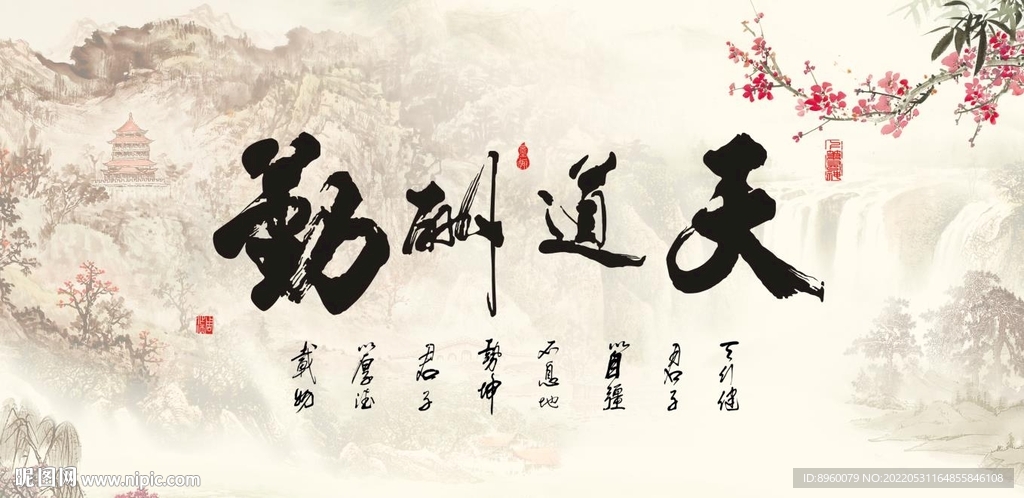 天道酬勤
天行健
君子
以自彊
不息地
勢坤
君子
以厚德
載物
昵图网 www.nipic.com
ID:8960079 NO:20220531164855846108